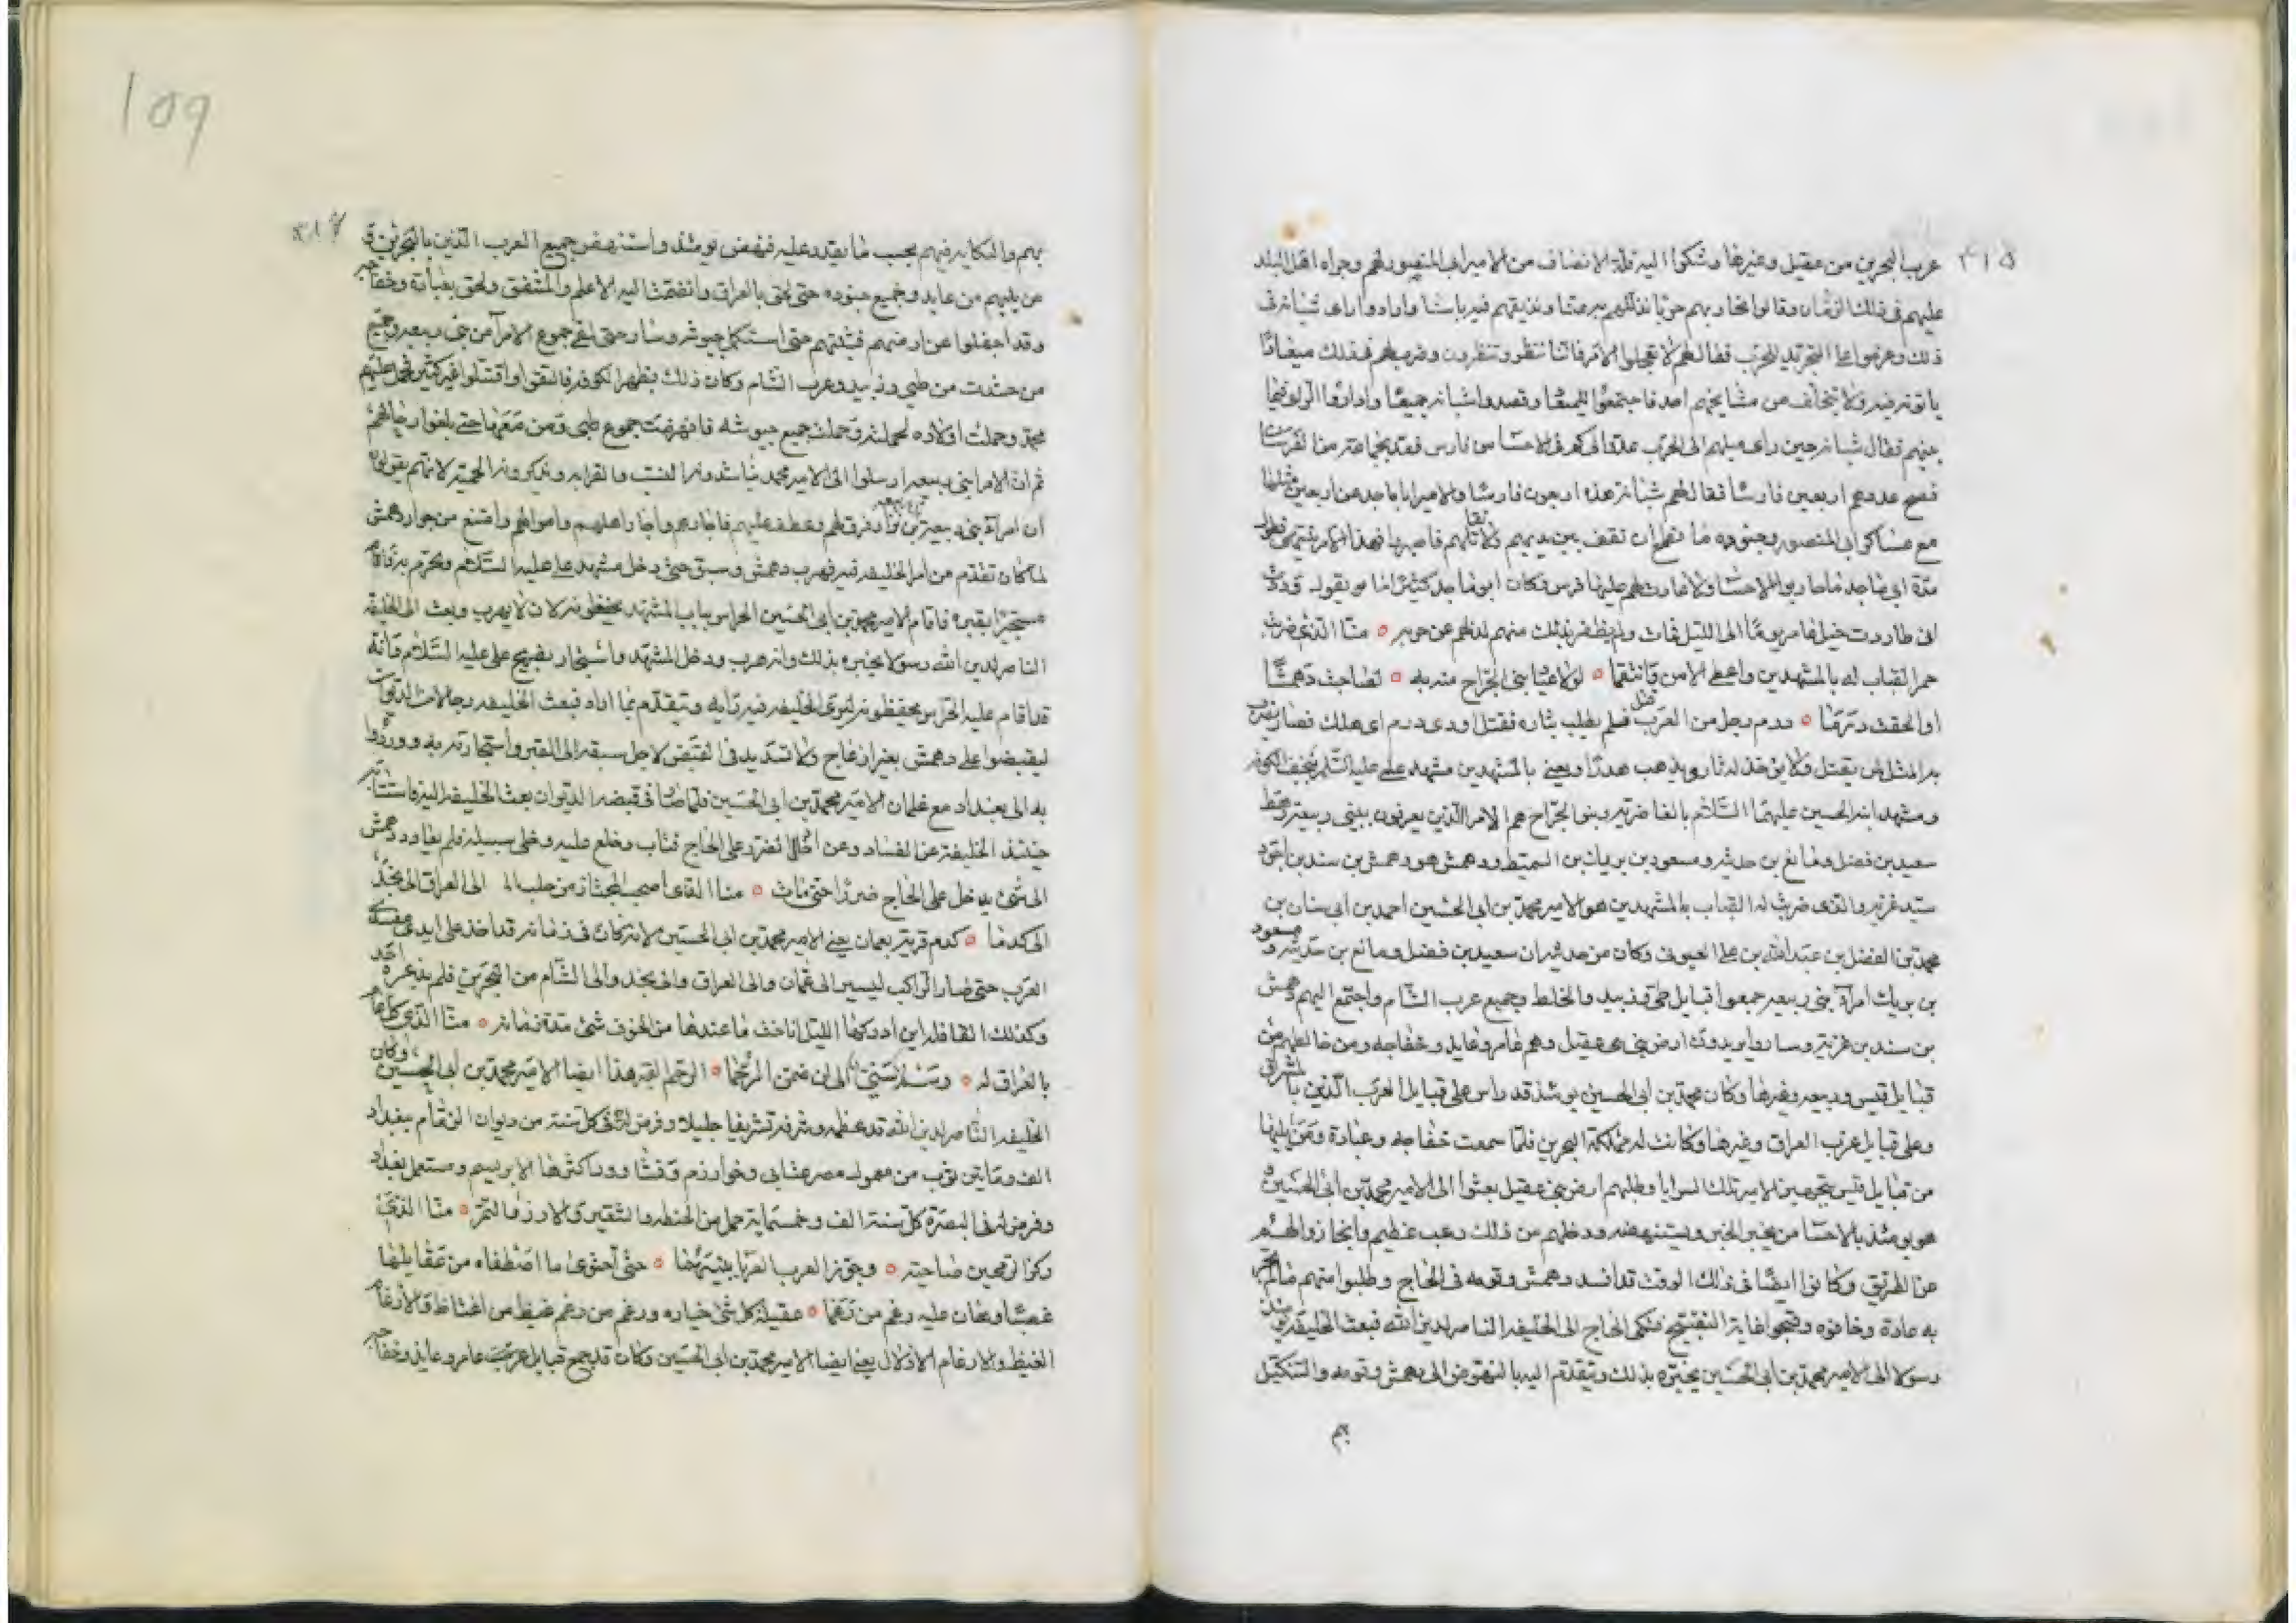 ٣١٥
عرب البحرين من عقيل وغيرها وشكوا اليه قلة الانصاف من الامير ابي المنصور لهم وجراه اهل البلد
عليهم في ذلك الزمان وقالوا نحاربهم حربا نذللهم به عنا ونذيقهم فيه باسنا وارادوا راى شبانه في
ذلك وعزموا على التجريد للحرب فقال لهم لا تعجلوا الامر فاننا ننظر وتنظرون وضرب لهم في ذلك ميعادا
ياتونه فيه ولا يتخلف من مشايخهم احد فاجتمعوا للميعاد وقصدوا شبانه جميعا واداروا الراى فيما
بينهم فقال شبانه حين راى ميلهم الى الحرب عدوا لي كم في الاحسا من فارس
فصح عددهم اربعين فارسا فقال لهم شبانه هذه اربعون فارسا والامير ابا ماجد عن اربعين مثلها
مع عساكر ابي المنصور وجنوده ما نطمع ان نقف بين يديهم ولا نقاتلهم
مدة ابي ماجد ما حاربوا الاحسا ولا غارت لهم عليها فرس وكان ابو ماجد كثيرا ما يقول وددت
اني طاردت خيل عامر يوما الى الليل فمات ولم يظفر بذلك منهم لذلهم عن حربه ٥ منا الذي ضربت
حمر القباب له بالمشهدين واعطى الامن وانتقما ٥ لولا عياذ بني الجراح منه به ٥ لصاحبت دهمشا
او الحقت درما ٥ درم رجل من العرب قتل فلم يطلب بثاره فقتل اودى درم اى هلك فصار يضرب
به المثل لمن يقتل ولا يوخذ له ثار ويذهب هدرا ويعني بالمشهدين مشهد علي عليه السلم بنجف الكوفه
ومشهد ابنه الحسين عليهما السلام بالغاضرية وبنو الجراح هم الامرا الذين يعرفون ببني ربيعه رهط
سعيد بن فضل ومانع بن حديثه ومسعود بن بريك بن السميط ودهمش هو دهمش بن سند بن اجود
سيد غزيه والذي ضربت له القباب بالمشهدين هو الامير محمد بن ابي الحسين احمد بن ابي سنان بن
محمد بن الفضل بن عبد الله بن علي العيوني وكان من حديثه ان سعيد بن فضل ومانع بن حديثه ومسعود
بن بريك امراء بني ربيعه جمعوا قبايل طي وزبيد والخلط وجميع عرب الشام واجتمع اليهم دهمش
بن سند بن غزيه وساروا يريدون ارض بني عقيل وهم عامر وعايد وخفاجه ومن خالطهم من
قبايل قيس وربيعه وغيرها وكان محمد بن ابي الحسين يومئذ قد راس على قبايل العرب الذين بالشرق
وعلى قبايل عرب العراق وغيرها وكانت له مملكة البحرين فلما سمعت خفاجه وعبادة ومن يليها
من قبايل قيس بتجهيز الامير تلك السرايا وطلبهم ارض بني عقيل بعثوا الى الامير محمد بن ابي الحسين
هو يومئذ بالاحسا من يخبر الخبر ويستنهضه ودخلهم من ذلك رعب عظيم وانحازوا لهم
عن الطريق وكانوا ايضا في ذلك الوقت قد افسد دهمش وقومه في الحاج وطلبوا منهم ما لم تجر
به عادة وخافوه وقبحوا غاية التقبيح فشكى الحاج الى الخليفه الناصر لدين الله فبعث الخليفه
رسولا الى الامير محمد بن ابي الحسين يخبره بذلك ويتقدم اليه بالنهوض الى دهمش وقومه والتنكيل
بهم
109
٣١٦
بهم والنكايه فيهم بحسب ما يقدر عليه فنهض يومئذ واستنهض جميع العرب الذين بالبحرين
من يليهم من عايد وجميع جنوده حتى لحق بالعراق وانضمت اليه الاعلم والمنتفق ولحق بعبادة وخفاجه
وقد اجفلوا عن ارضهم فثبتهم حتى استكمل جيوشه وسار حتى لقى جموع الامرآ من بني ربيعه وجميع
من حشدت من طي وزبيد وعرب الشام وكان ذلك بظهر الكوفه فالتقوا واقتتلوا غير كثير فحمل عليهم
محمد وحملت اولاده لحملته وحملت جميع جيوشه فانهزمت جموع طي ومن معها حتى بلغوا رحالهم
ثم ان الامرا بني ربيعه ارسلوا الى الامير محمد يناشدونه النسب والقرابه ويذكرونه الحميه لانهم يقولون
ان امراء بني ربيعه فرق لهم وعطف عليهم فاجارهم واجار اهلهم واموالهم وامتنع من جوار دهمش
لما كان تقدم من امر الخليفه فيه فهرب دهمش وسبق حتى دخل مشهد علي عليه السلام
مستجيرا بقبره فاقام الامير محمد بن ابي الحسين الحراس بباب المشهد يحفظونه لان لا يهرب وبعث الى الخليفه
الناصر لدين الله رسولا يخبره بذلك وانه هرب ودخل المشهد واستجار بضريح علي عليه السلام وانه
قد اقام عليه الحراس يحفظونه ليرى الخليفه فيه رايه ويتقدم بما اراد فبعث الخليفه رجالا من الديوان
ليقبضوا على دهمش بغير ازعاج ولا تشديد في القبض لاجل سبقه الى القبر واستجارته به ووردوا
به الى بغداد مع غلمان الامير محمد بن ابي الحسين فلما صار في قبضه الديوان بعث الخليفه اليه واستتابه
حينئذ الخليفه عن الفساد وعن التعرض على الحاج فتاب وخلع عليه وخلى سبيله فلم يعاود دهمش
الى شئ يدخل على الحاج ضررا حتى مات ٥ منا الذي اصحب المجتاز من حلب الى العراق الى نجد
الى كدما ٥ كدم قرية بعمان يعني الامير محمد بن ابي الحسين لانه كان في زمانه قد اخذ على ايدي مفسدي
العرب حتى صار الراكب ليسير الى عمان والى العراق والى نجد والى الشام من البحرين فلم يذعره احد
وكذلك القافله اين ادركها الليل اناخت ما عندها من الخوف شئ مدة زمانه ٥ منا الذي كل عام
بالعراق له ٥ رسم سني الى ان ضمن الرجما ٥ الرجم القبر هذا ايضا الامير محمد بن ابي الحسين وكان
الخليفه الناصر لدين الله قد عظمه وشرفه تشريفا جليلا وفرض له في كل سنة من ديوان الزمام ببغداد
الف ومايتين ثوب من معمول مصر عتابي وخوارزم اكثرها الابريسم ومستعمل بغداد
وفرض له في البصرة كل سنة الف وخمسماية حمل من الحنطه والشعير والارز والتمر ٥ منا الذي
ركز الرمحين ضاحية ٥ وجوز العرب العربا بينهما ٥ حتى احتوى ما اصطفاه من عقايلها
غصبا وهان عليه رغم من رغما ٥ عقيلة كل شئ خياره ورغم من رغم غيظ من اغتاظ والارغام
الغيظ والارغام الاذلال يعني ايضا الامير محمد بن ابي الحسين وكان قد جمع قبايل عرب عامر وعايذ وخفاجه